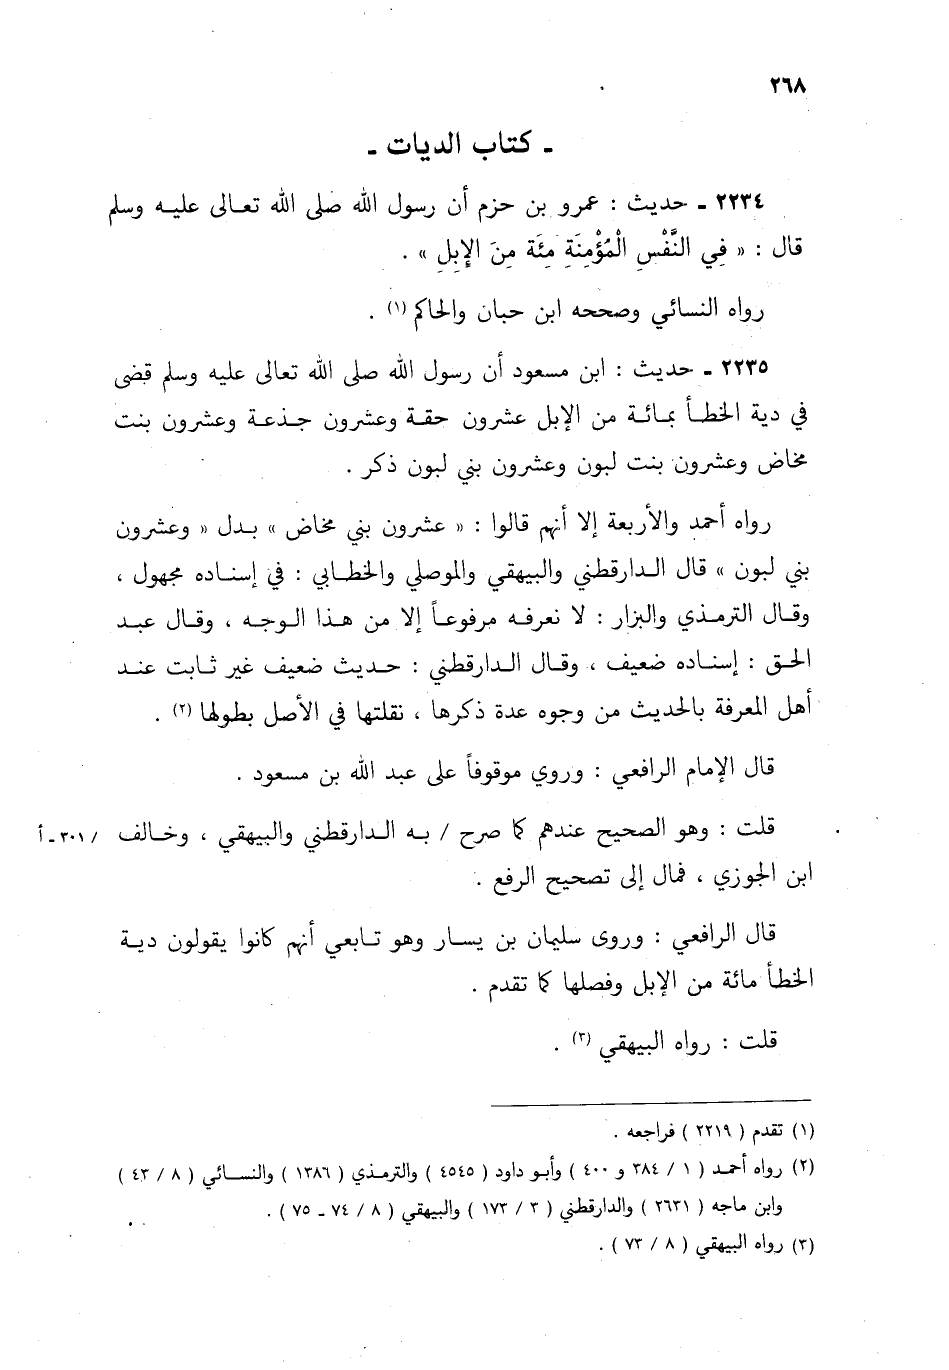 ٢٦٨
ـ كتاب الديات ـ
٢٢٣٤ ـ حديث : عمرو بن حزم أن رسول الله صلى الله تعالى عليه وسلم
قال : « فِي النَّفْسِ الْمُؤْمِنَةِ مِئَة مِنَ الإِبِلِ » .
رواه النسائي وصححه ابن حبان والحاكم (١) .
٢٢٣٥ ـ حديث : ابن مسعود أن رسول الله صلى الله تعالى عليه وسلم قضى
في دية الخطأ بمائة من الإبل عشرون حقة وعشرون جذعة وعشرون بنت
مخاض وعشرون بنت لبون وعشرون بني لبون ذكر .
رواه أحمد والأربعة إلا أنهم قالوا : « عشرون بني مخاض » بدل « وعشرون
بني لبون » قال الدارقطني والبيهقي والموصلي والخطابي : في إسناده مجهول ،
وقال الترمذي والبزار : لا نعرفه مرفوعاً إلا من هذا الوجه ، وقال عبد
الحق : إسناده ضعيف ، وقال الدارقطني : حديث ضعيف غير ثابت عند
أهل المعرفة بالحديث من وجوه عدة ذكرها ، نقلتها في الأصل بطولها (٢) .
قال الإمام الرافعي : وروي موقوفاً على عبد الله بن مسعود .
قلت : وهو الصحيح عندهم كما صرح / به الدارقطني والبيهقي ، وخالف /٣٠١ ـ أ
ابن الجوزي ، فمال إلى تصحيح الرفع .
قال الرافعي : وروى سليمان بن يسار وهو تابعي أنهم كانوا يقولون دية
الخطأ مائة من الإبل وفصلها كما تقدم .
قلت : رواه البيهقي (٣) .
(١) تقدم ( ٢٢١٩ ) فراجعه .
(٢) رواه أحمد ( ١ / ٣٨٤ و ٤٠٠ ) وأبو داود ( ٤٥٤٥ ) والترمذي ( ١٣٨٦ ) والنسائي ( ٨ / ٤٣ )
وابن ماجه ( ٢٦٣١ ) والدارقطني ( ٣ / ١٧٣ ) والبيهقي ( ٨ / ٧٤ ـ ٧٥ ) .
(٣) رواه البيهقي ( ٨ / ٧٣ ) .